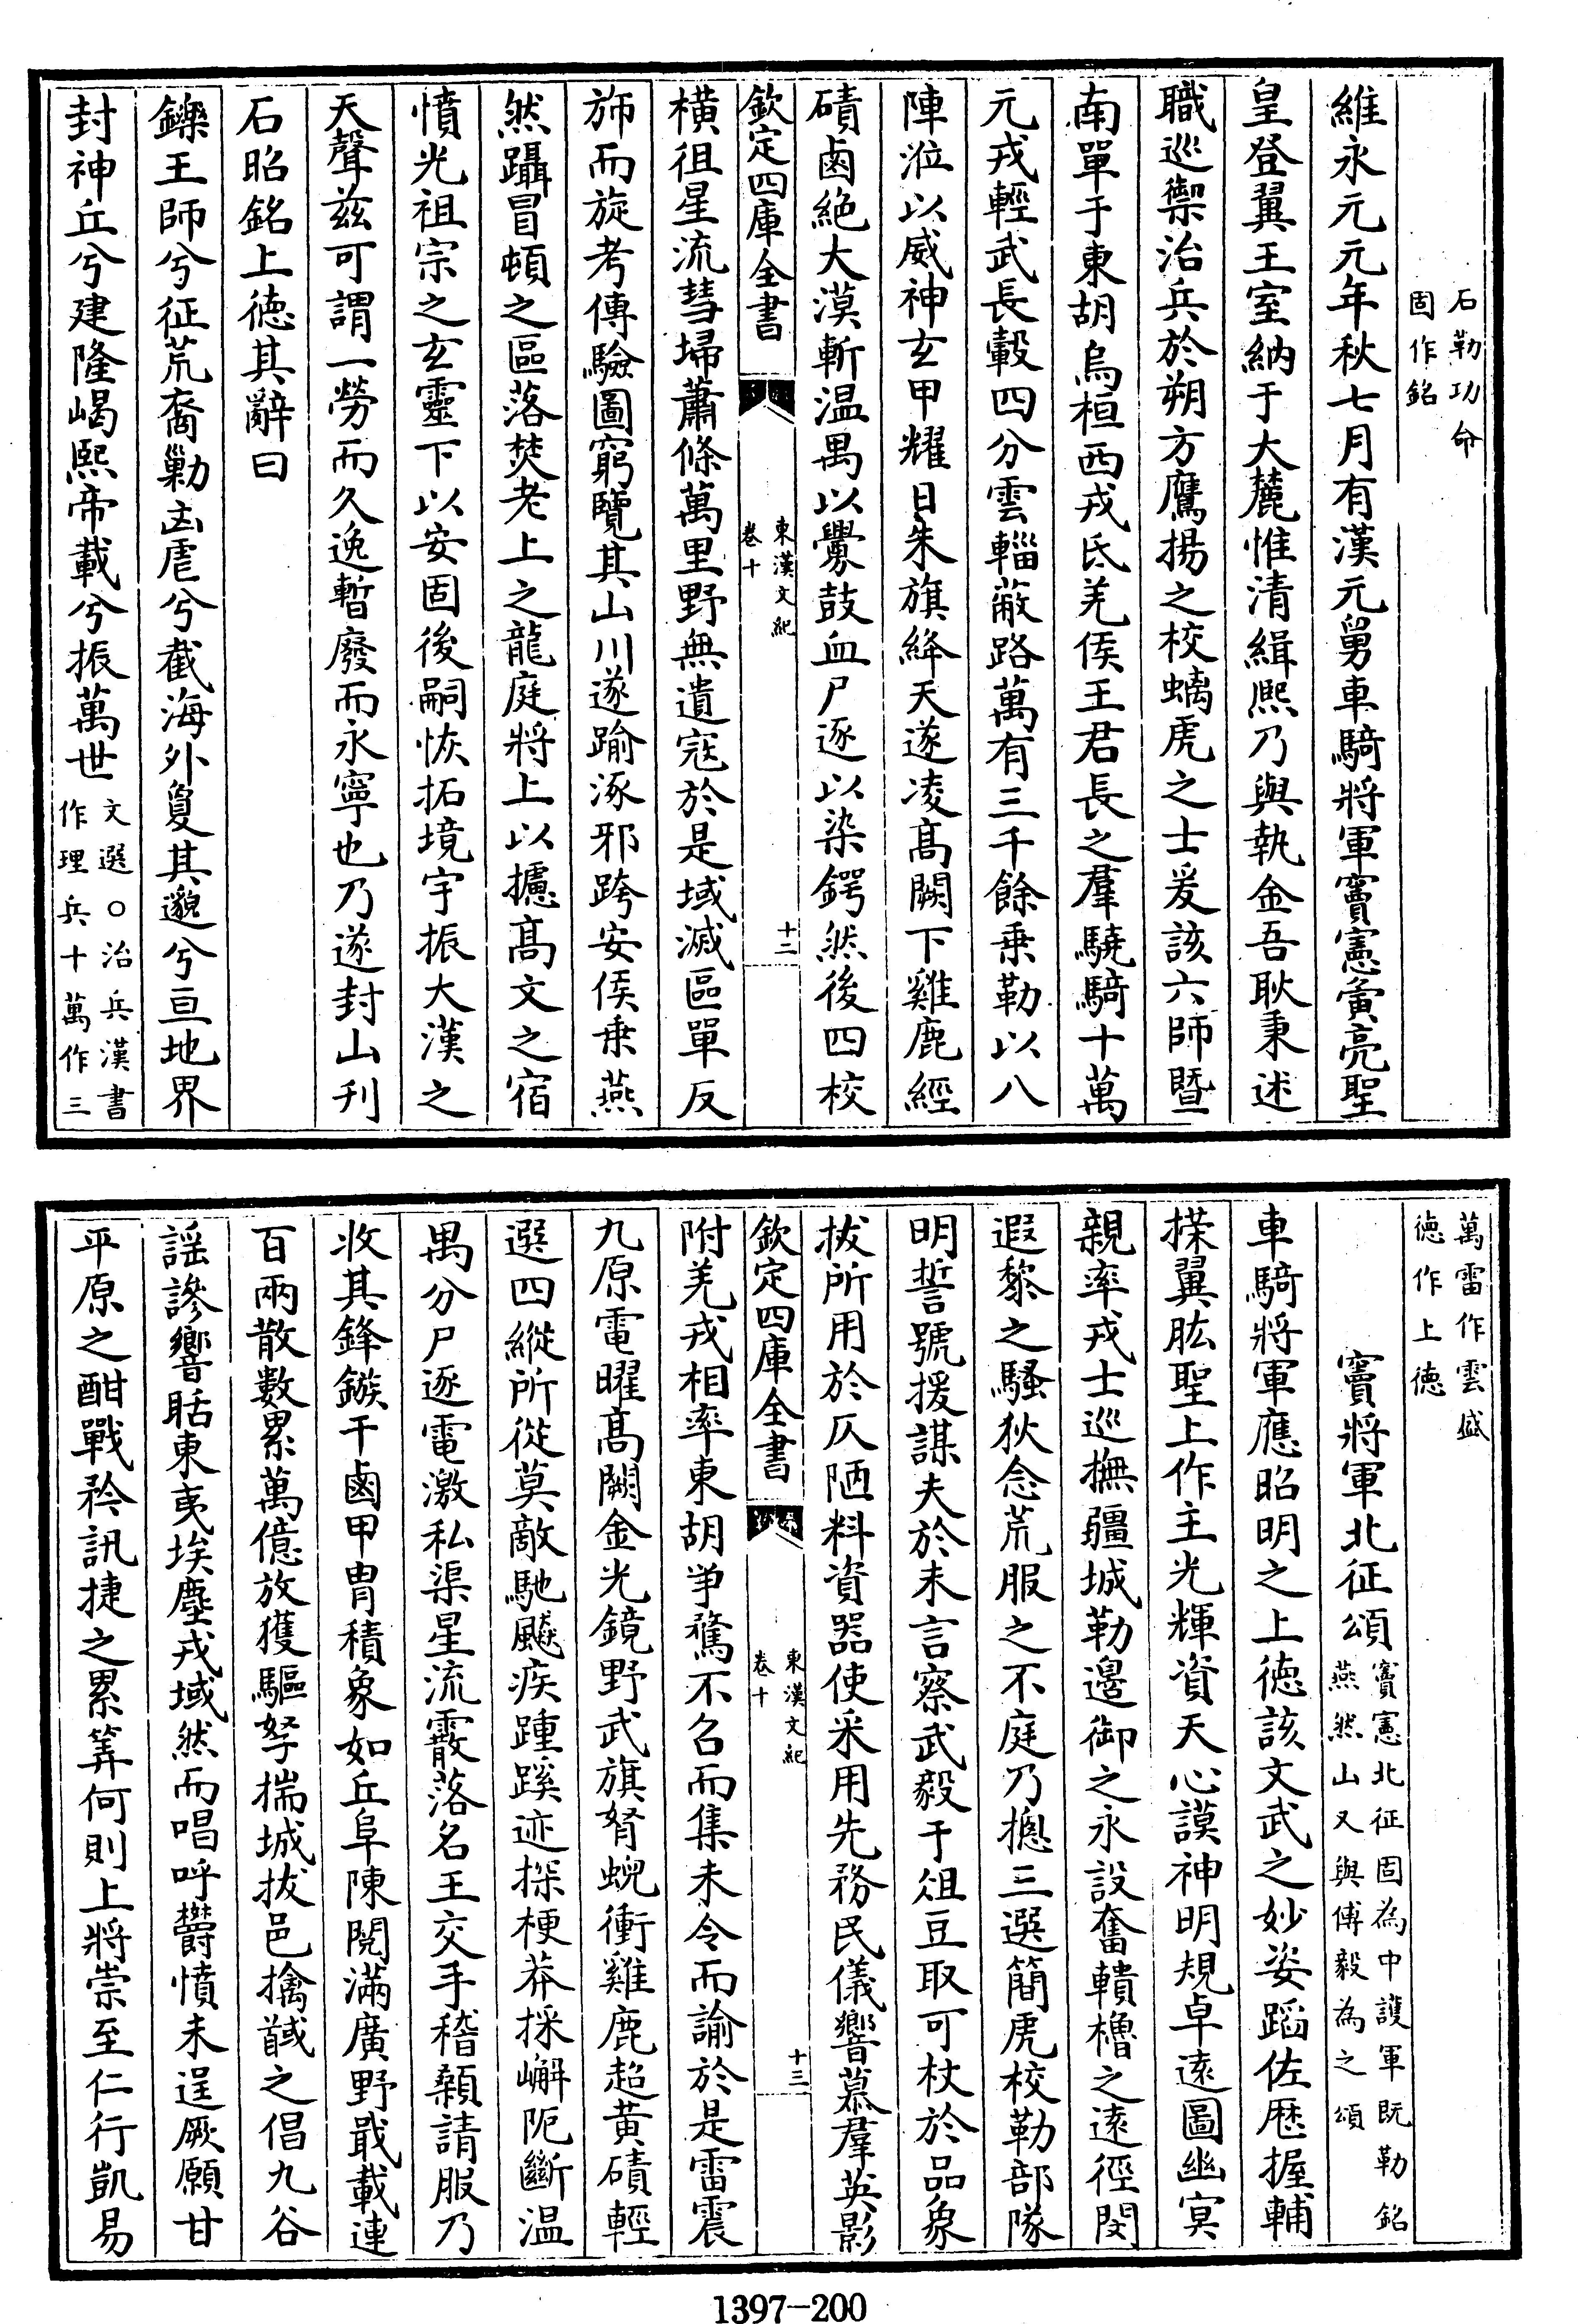 石勒功命
固作銘
維永元元年秋七月有漢元舅車騎將軍竇憲寅亮聖
皇登翼王室納于大麓惟清緝熙乃與執金吾耿秉述
職巡禦治兵於朔方鷹揚之校螭虎之士爰該六師暨
南單于東胡烏桓西戎氐羌侯王君長之羣驍騎十萬
元戎輕武長轂四分雲輜蔽路萬有三千餘乗勒以八
陣涖以威神玄甲耀日朱旗絳天遂凌髙闕下雞鹿經
磧鹵絶大漠斬温禺以釁鼓血尸逐以染鍔然後四校
欽定四庫全書
東漢文紀
卷十
十二
橫徂星流彗埽蕭條萬里野無遺寇於是域滅區單反
斾而旋考傳驗圖窮覽其山川遂踰涿邪跨安侯乗燕
然躡冒頓之區落焚老上之龍庭將上以攄髙文之宿
憤光祖宗之玄靈下以安固後嗣恢拓境宇振大漢之
天聲兹可謂一勞而久逸暫廢而永寧也乃遂封山刋
石昭銘上徳其辭曰
鑠王師兮征荒裔勦凶虐兮截海外敻其邈兮亘地界
封神丘兮建隆嵑熙帝載兮振萬世
文選○治兵漢書
作理兵十萬作三
萬雷作雲盛
徳作上徳
竇將軍北征頌
竇憲北征固為中護軍既勒銘
燕然山又與傅毅為之頌
車騎將軍應昭明之上徳該文武之妙姿蹈佐歴握輔
䇿翼肱聖上作主光輝資天心謨神明規卓遠圖幽冥
親率戎士巡撫疆城勒邊御之永設奮轒櫓之遠徑閔
遐黎之騷狄念荒服之不庭乃摠三選簡虎校勒部隊
明誓號援謀夫於末言察武毅于俎豆取可杖於品象
拔所用於仄陋料資器使采用先務民儀響慕羣英影
欽定四庫全書
東漢文紀
卷十
十三
附羌戎相率東胡爭騖不召而集未令而諭於是雷震
九原電曜髙闕金光鏡野武旗胥蜺衝雞鹿超黄磧輕
選四縱所從莫敵馳飈疾踵蹊迹探梗莽採嶰阨斷温
禺分尸逐電激私渠星流霰落名王交手稽顙請服乃
收其鋒鏃干鹵甲胄積象如丘阜陳閱滿廣野戢載連
百兩散數累萬億放獲驅孥揣城拔邑擒馘之倡九谷
謡譟響聒東夷埃塵戎域然而唱呼鬱憤未逞厥願甘
平原之酣戰矜訊捷之累筭何則上將崇至仁行凱易
1397-200